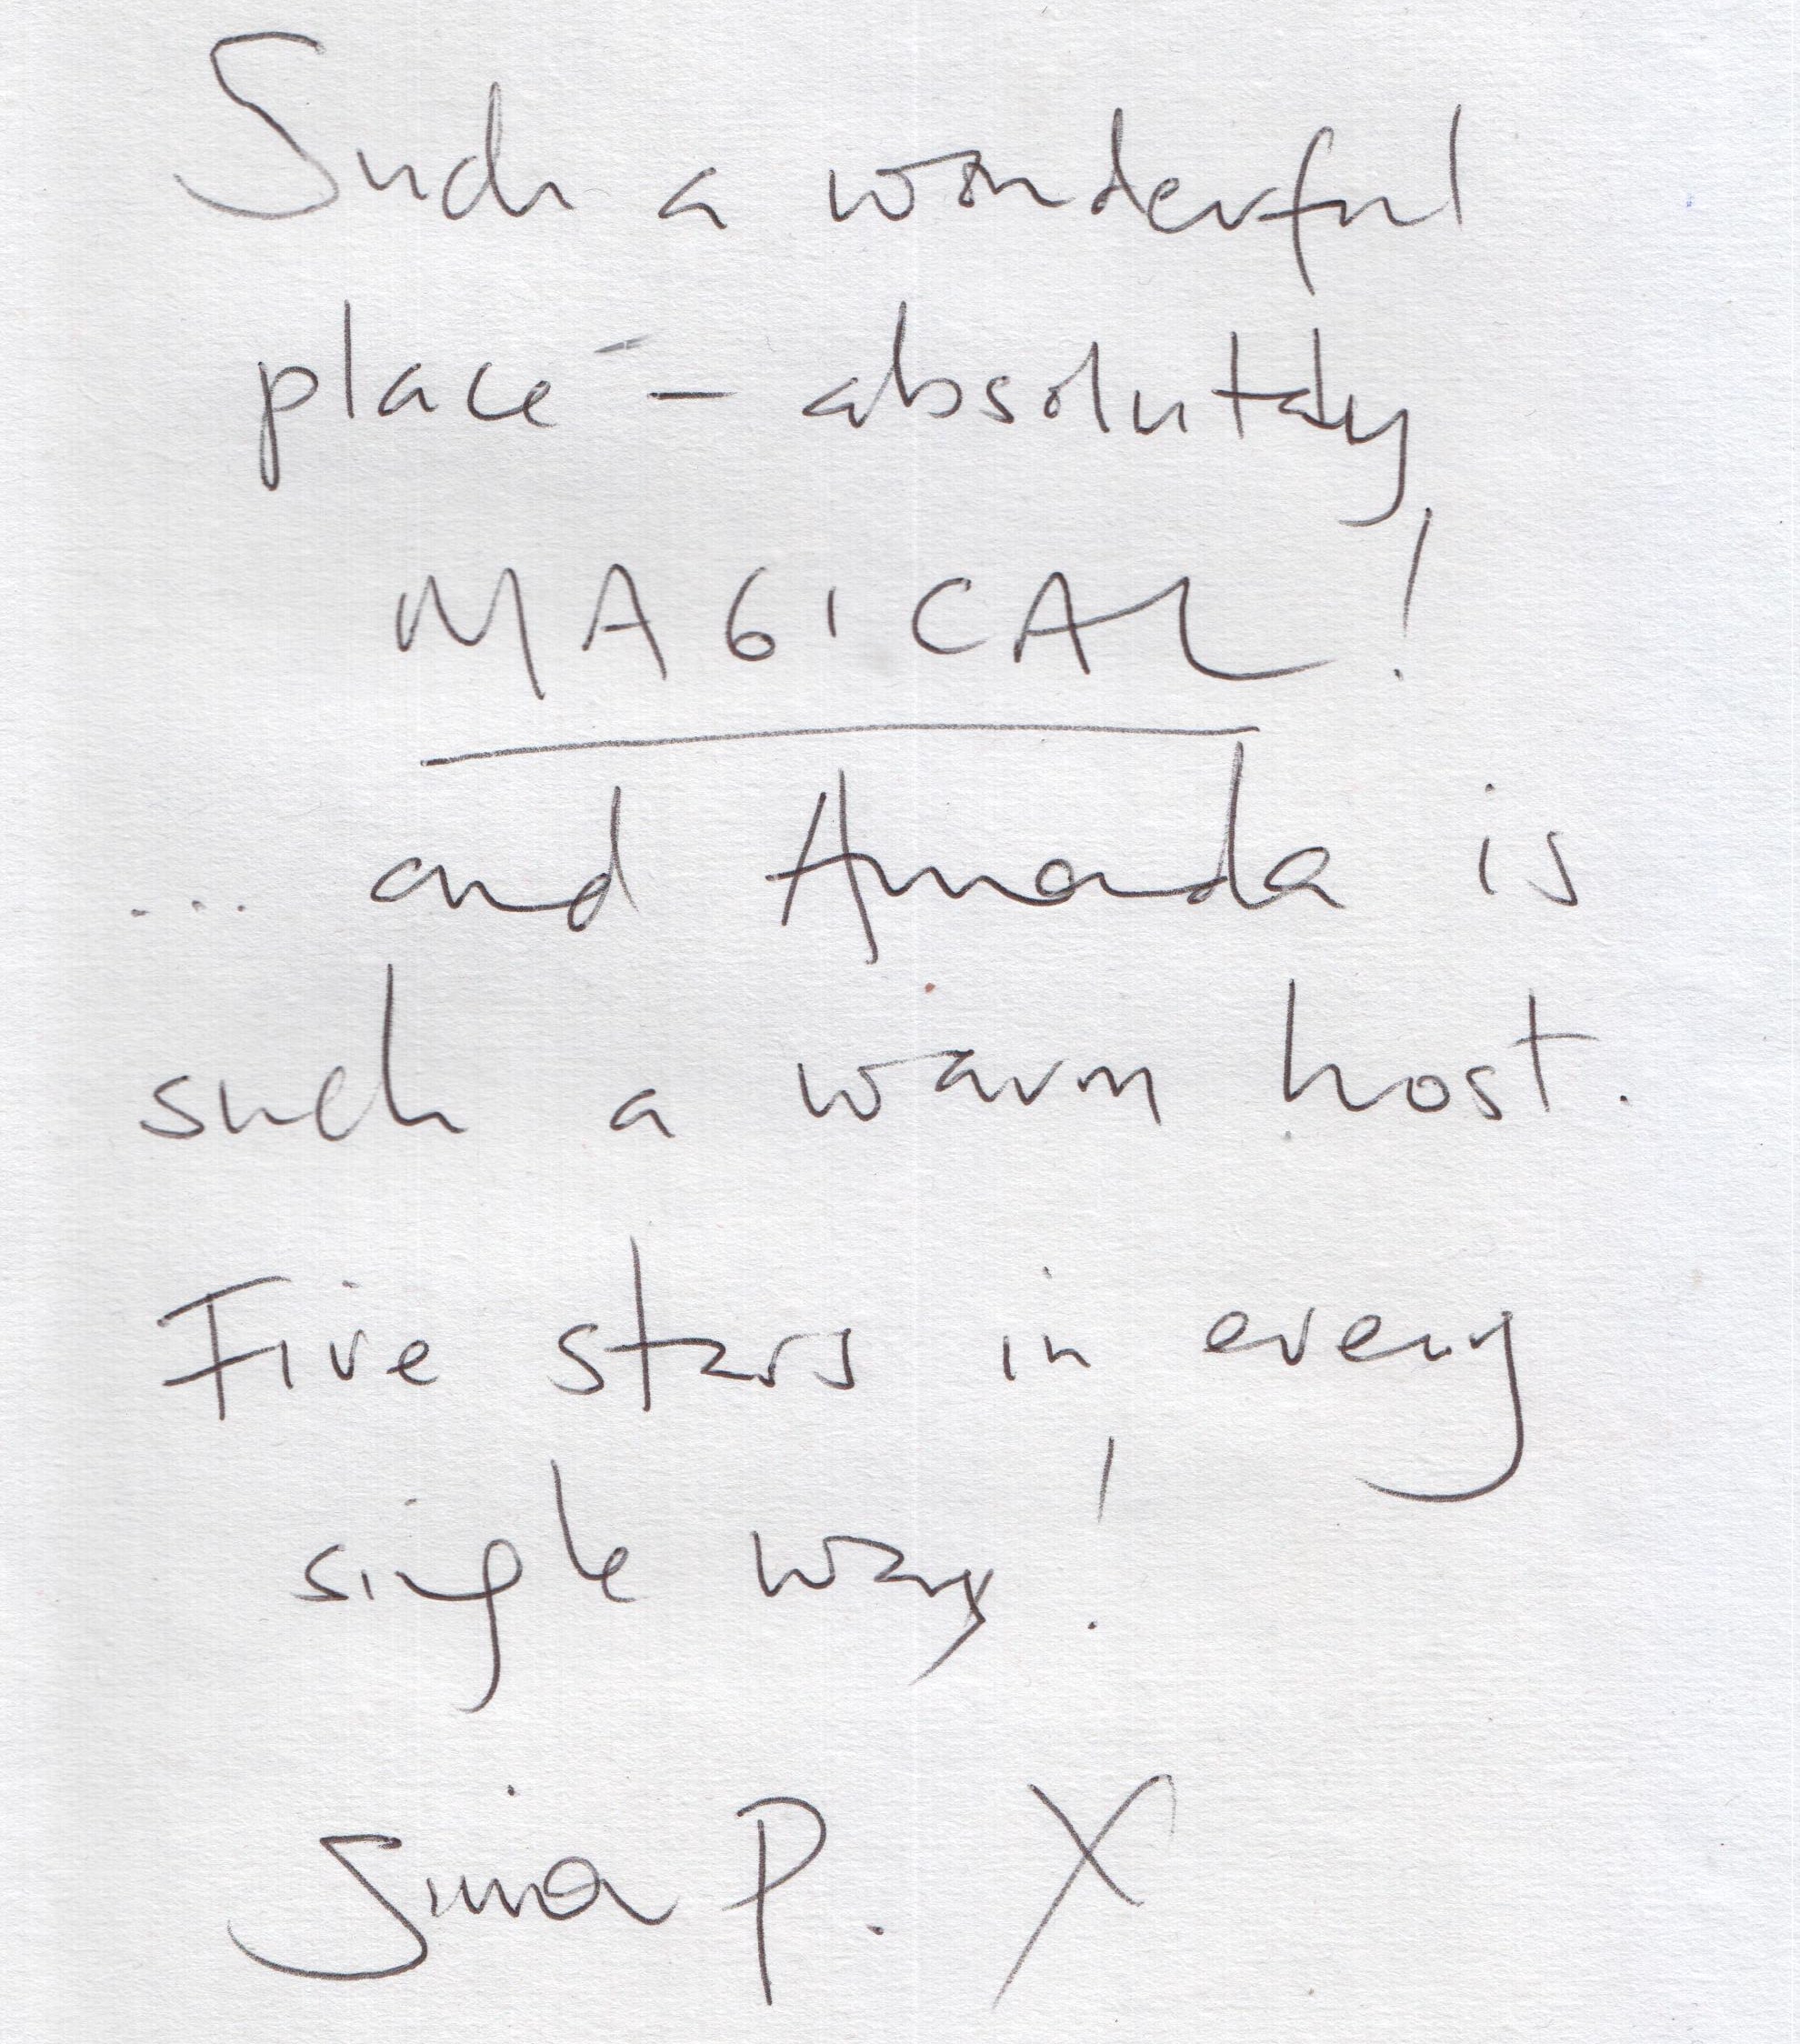 Such a wonderful
place - absolutely
MAGICAL!
... and Amanda is
such a warm host.
Five stars in every
single way!
Sima P. X